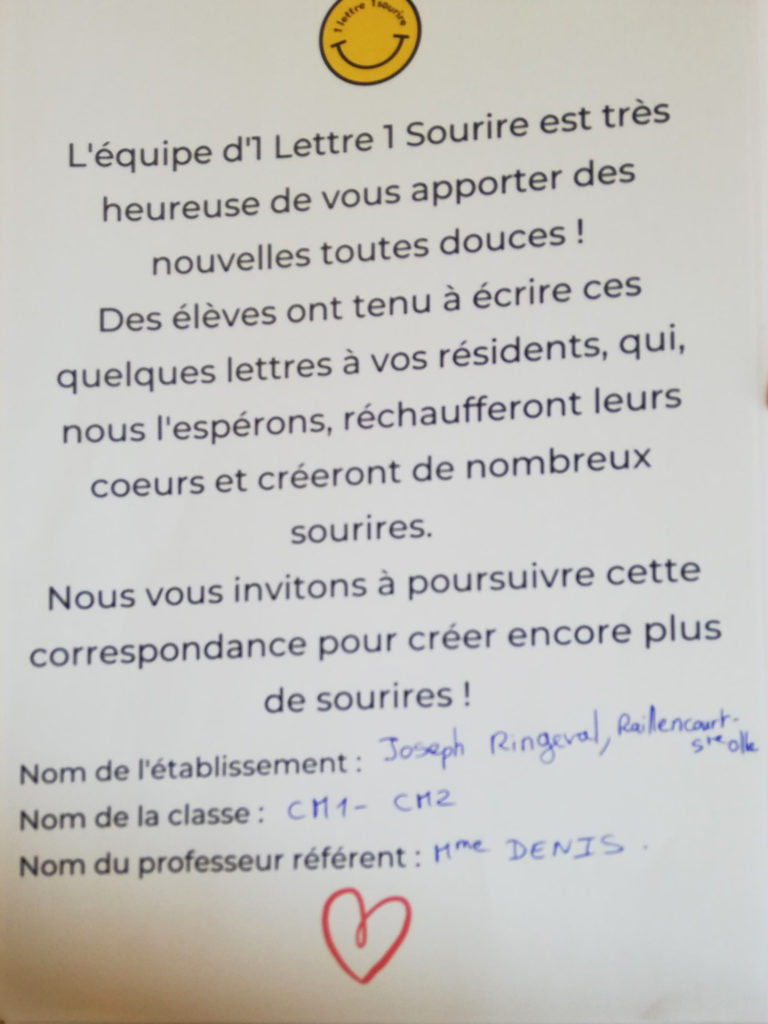 1 lettre 1 sourire
L'équipe d'1 Lettre 1 Sourire est très
heureuse de vous apporter des
nouvelles toutes douces !
Des élèves ont tenu à écrire ces
quelques lettres à vos résidents, qui,
nous l'espérons, réchaufferont leurs
coeurs et créeront de nombreux
sourires.
Nous vous invitons à poursuivre cette
correspondance pour créer encore plus
de sourires !
Nom de l'établissement : Joseph Ringeval, Raillencourt-
Ste olle
Nom de la classe : CM1- CM2
Nom du professeur référent : Mme DENIS.